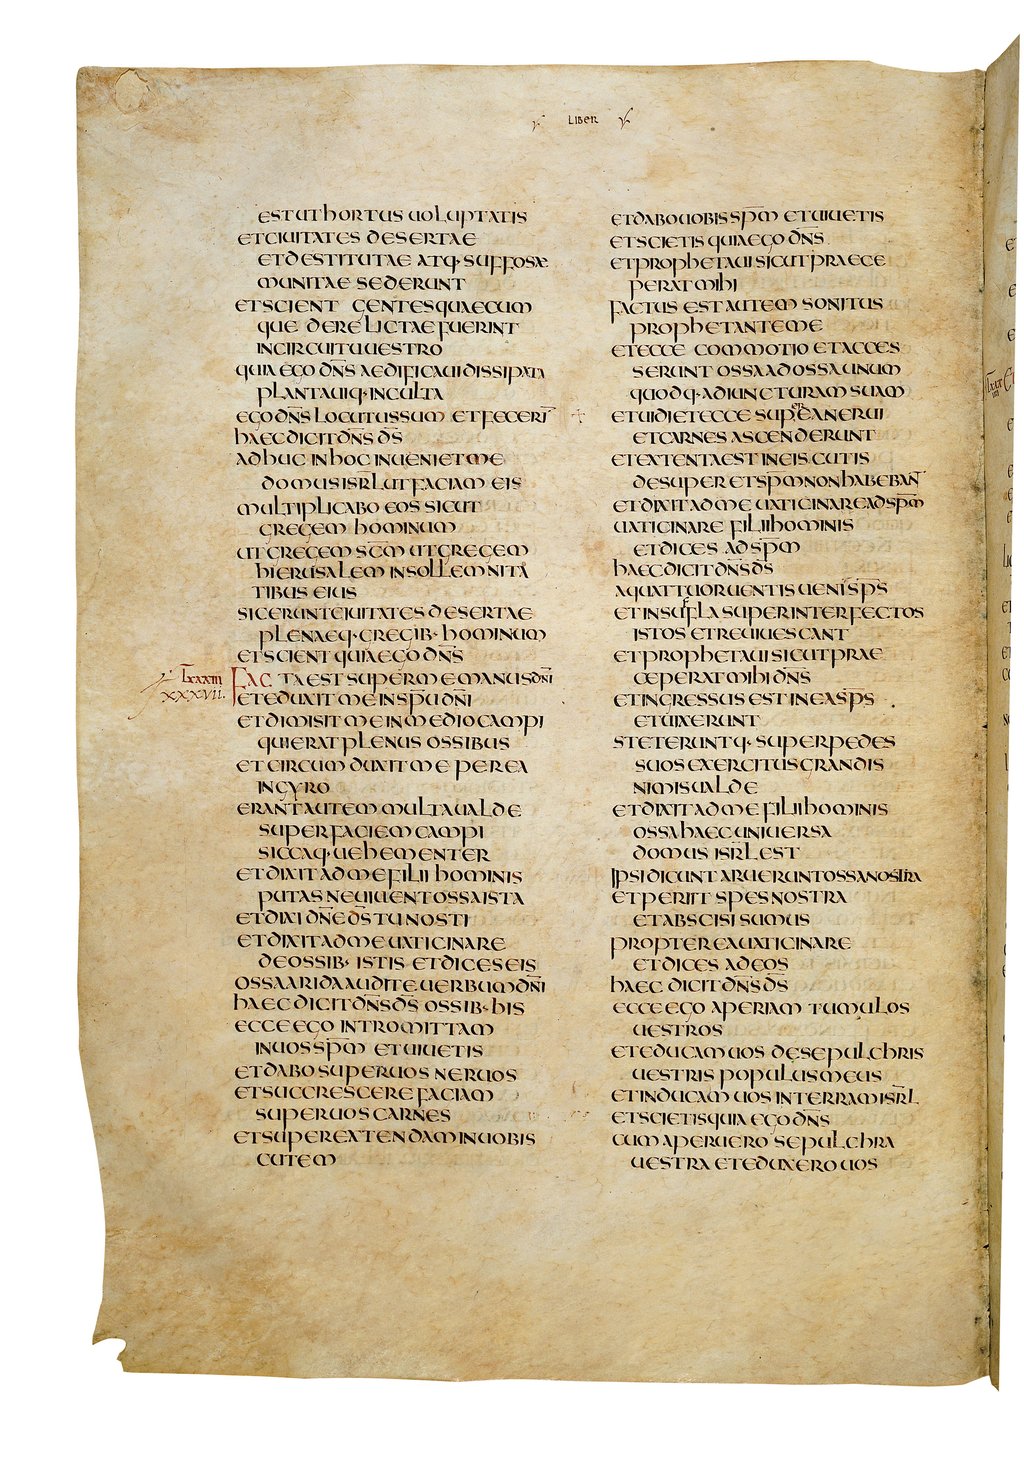 LIBER
EST UT HORTUS UOLUPTATIS
ET CIUITATES DESERTAE
ET DESTITUTAE ATQ· SUFFOSAE
MUNITAE SEDERUNT
ET SCIENT GENTES QUAECUM
QUE DERELICTAE FUERINT
IN CIRCUITU UESTRO
QUIA EGO DN̄S AEDIFICAUI DISSIPATA
PLANTAUIQ· INCULTA
EGO DN̄S LOCUTUS SUM ET FECERIM̄
HAEC DICIT DN̄S DS̄
ADHUC IN HOC INUENIET ME
DOMUS ISRL̄ UT FACIAM EIS
MULTIPLICABO EOS SICUT
GREGEM HOMINUM
UT GREGEM SC̄M UT GREGEM
HIERUSALEM IN SOLLEMNITA
TIBUS EIUS
SIC ERUNT CIUITATES DESERTAE
PLENAEQ· GREGIB· HOMINUM
ET SCIENT QUIA EGO DN̄S
LXXXIII
XXXVII.
FACTA EST SUPER ME MANUS DN̄I
ET EDUXIT ME IN SPŪ DN̄I
ET DIMISIT ME IN MEDIO CAMPI
QUI ERAT PLENUS OSSIBUS
ET CIRCUMDUXIT ME PER EA
IN GYRO
ERANT AUTEM MULTA UALDE
SUPER FACIEM CAMPI
SICCAQ· UEHEMENTER
ET DIXIT AD ME FILII HOMINIS
PUTASNE UIUENT OSSA ISTA
ET DIXI DN̄E DS̄ TU NOSTI
ET DIXIT AD ME UATICINARE
DE OSSIB· ISTIS ET DICES EIS
OSSA ARIDA AUDITE UERBUM DN̄I
HAEC DICIT DN̄S DS̄ OSSIB· HIS
ECCE EGO INTROMITTAM
IN UOS SPM̄ ET UIUETIS
ET DABO SUPER UOS NERUOS
ET SUCCRESCERE FACIAM
SUPER UOS CARNES
ET SUPEREXTENDAM IN UOBIS
CUTEM
ET DABO UOBIS SPM̄ ET UIUETIS
ET SCIETIS QUIA EGO DN̄S
ET PROPHETAUI SICUT PRAECE
PERAT MIHI
FACTUS EST AUTEM SONITUS
PROPHETANTE ME
ET ECCE COMMOTIO ET ACCES
SERUNT OSSA AD OSSA UNUM
QUODQ· AD IUNCTURAM SUAM
ET UIDI ET ECCE SUPER EA NERUI
ET CARNES ASCENDERUNT
ET EXTENTA EST IN EIS CUTIS
DESUPER ET SPM̄ NON HABEBANT̄
ET DIXIT AD ME UATICINARE AD SPM̄
UATICINARE FILII HOMINIS
ET DICES AD SPM̄
HAEC DICIT DN̄S DS̄
A QUATTUOR UENTIS UENI SPS̄
ET INSUFLA SUPER INTERFECTOS
ISTOS ET REUIUESCANT
ET PROPHETAUI SICUT PRAE
CEPERAT MIHI DN̄S
ET INGRESSUS EST IN EA SPS̄
ET UIXERUNT
STETERUNTQ· SUPER PEDES
SUOS EXERCITUS GRANDIS
NIMIS UALDE
ET DIXIT AD ME FILII HOMINIS
OSSA HAEC UNIUERSA
DOMUS ISRL̄ EST
IPSI DICUNT ARUERUNT OSSA NOSTRA
ET PERIIT SPES NOSTRA
ET ABSCISI SUMUS
PROPTEREA UATICINARE
ET DICES AD EOS
HAEC DICIT DN̄S DS̄
ECCE EGO APERIAM TUMULOS
UESTROS
ET EDUCAM UOS DE SEPULCHRIS
UESTRIS POPULUS MEUS
ET INDUCAM UOS IN TERRAM ISRL̄
ET SCIETIS QUIA EGO DN̄S
CUM APERUERO SEPULCHRA
UESTRA ET EDUXERO UOS